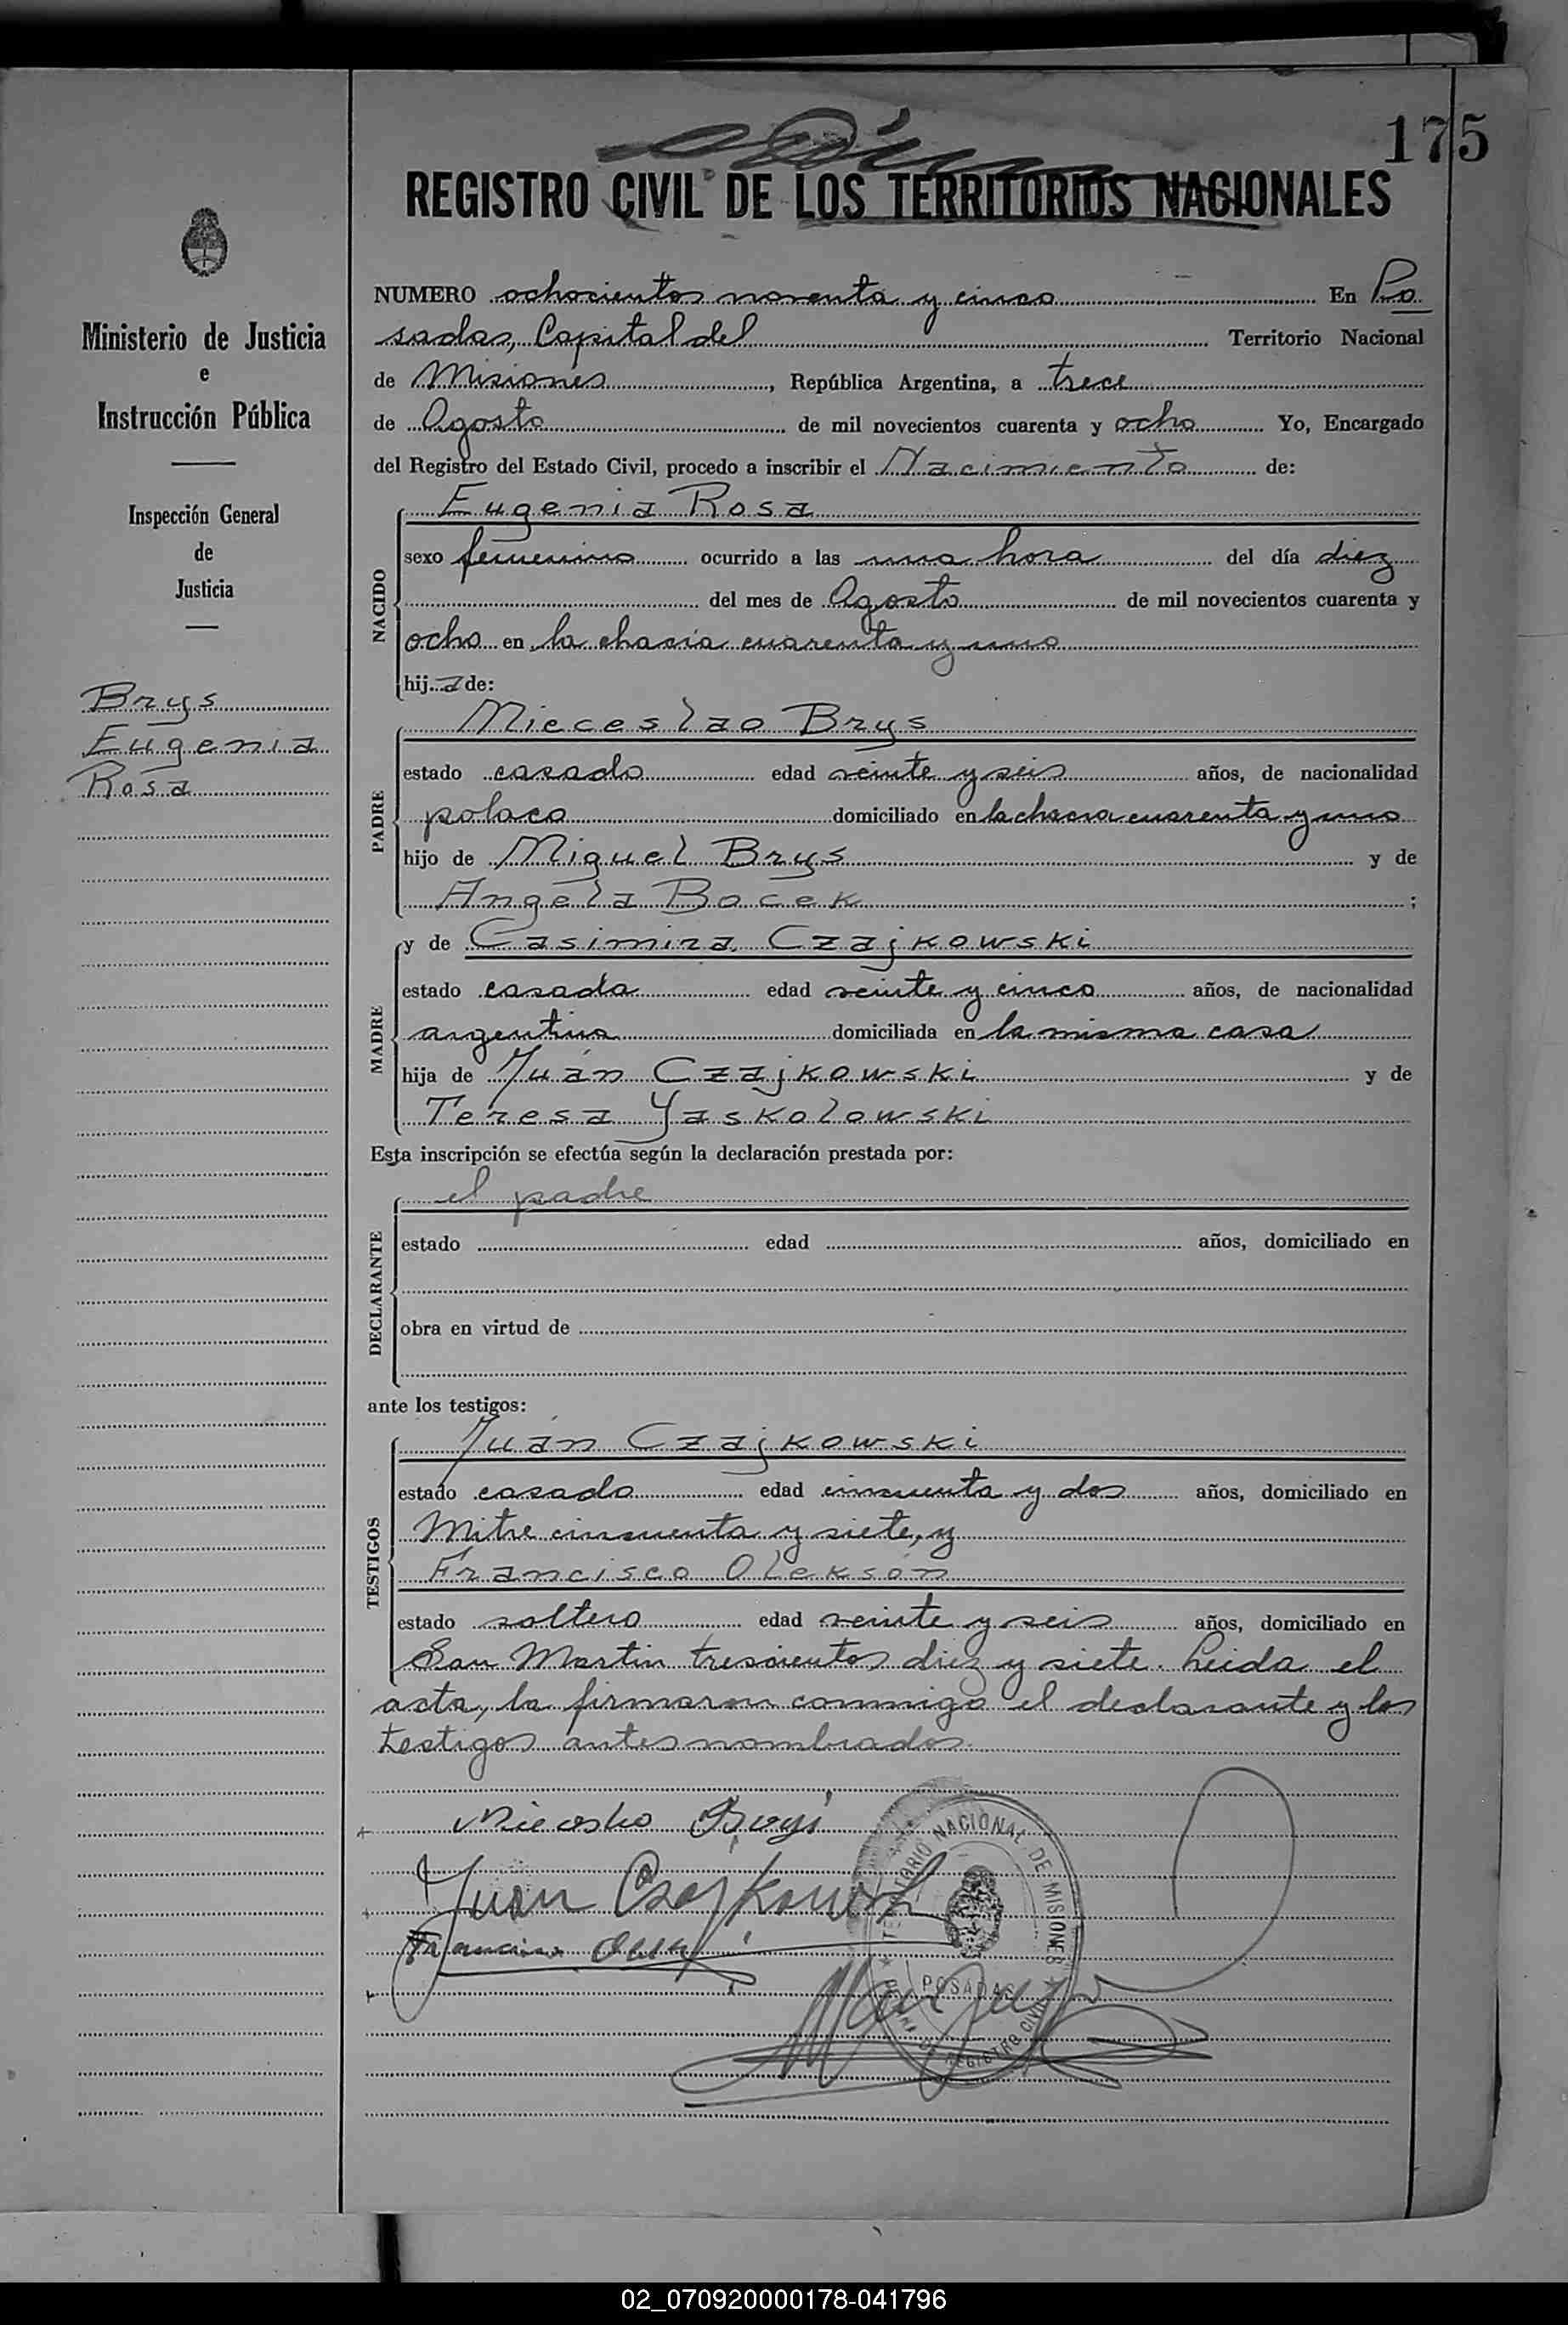 175
REGISTRO CIVIL DE LOS TERRITORIOS NACIONALES
Ministerio de Justicia
e
Instrucción Pública
Inspección General
de
Justicia
Brys
Eugenia
Rosa
NUMERO ochocientos noventa y cinco En Po
sadas, Capital del Territorio Nacional
de Misiones, República Argentina, a trece
de Agosto de mil novecientos cuarenta y ocho Yo, Encargado
del Registro del Estado Civil, procedo a inscribir el Nacimiento de:
NACIDO
Eugenia Rosa
sexo femenino ocurrido a las una hora del día diez
del mes de Agosto de mil novecientos cuarenta y
ocho en la chacra cuarenta y uno
hija de:
PADRE
Mieceslao Brys
estado casado edad veinte y seis años, de nacionalidad
polaca domiciliado en la chacra cuarenta y uno
hijo de Miguel Brys y de
Angela Bocek;
MADRE
y de Casimira Czajkowski
estado casada edad veinte y cinco años, de nacionalidad
argentina domiciliada en la misma casa
hija de Juán Czajkowski y de
Teresa Yaskolowski
Esta inscripción se efectúa según la declaración prestada por:
DECLARANTE
el padre
estado edad años, domiciliado en
obra en virtud de
ante los testigos:
TESTIGOS
Juán Czajkowski
estado casado edad cincuenta y dos años, domiciliado en
Mitre cincuenta y siete, y
Francisco Oleksón
estado soltero edad veinte y seis años, domiciliado en
San Martin trescientos diez y siete. Leida el
acta, la firmaron conmigo el declarante y los
testigos antes nombrados.
Juan Czajkowski
TERRITORIO NACIONAL DE MISIONES
POSADAS
OFICINA DE REGISTRO CIVIL
02_070920000178-041796